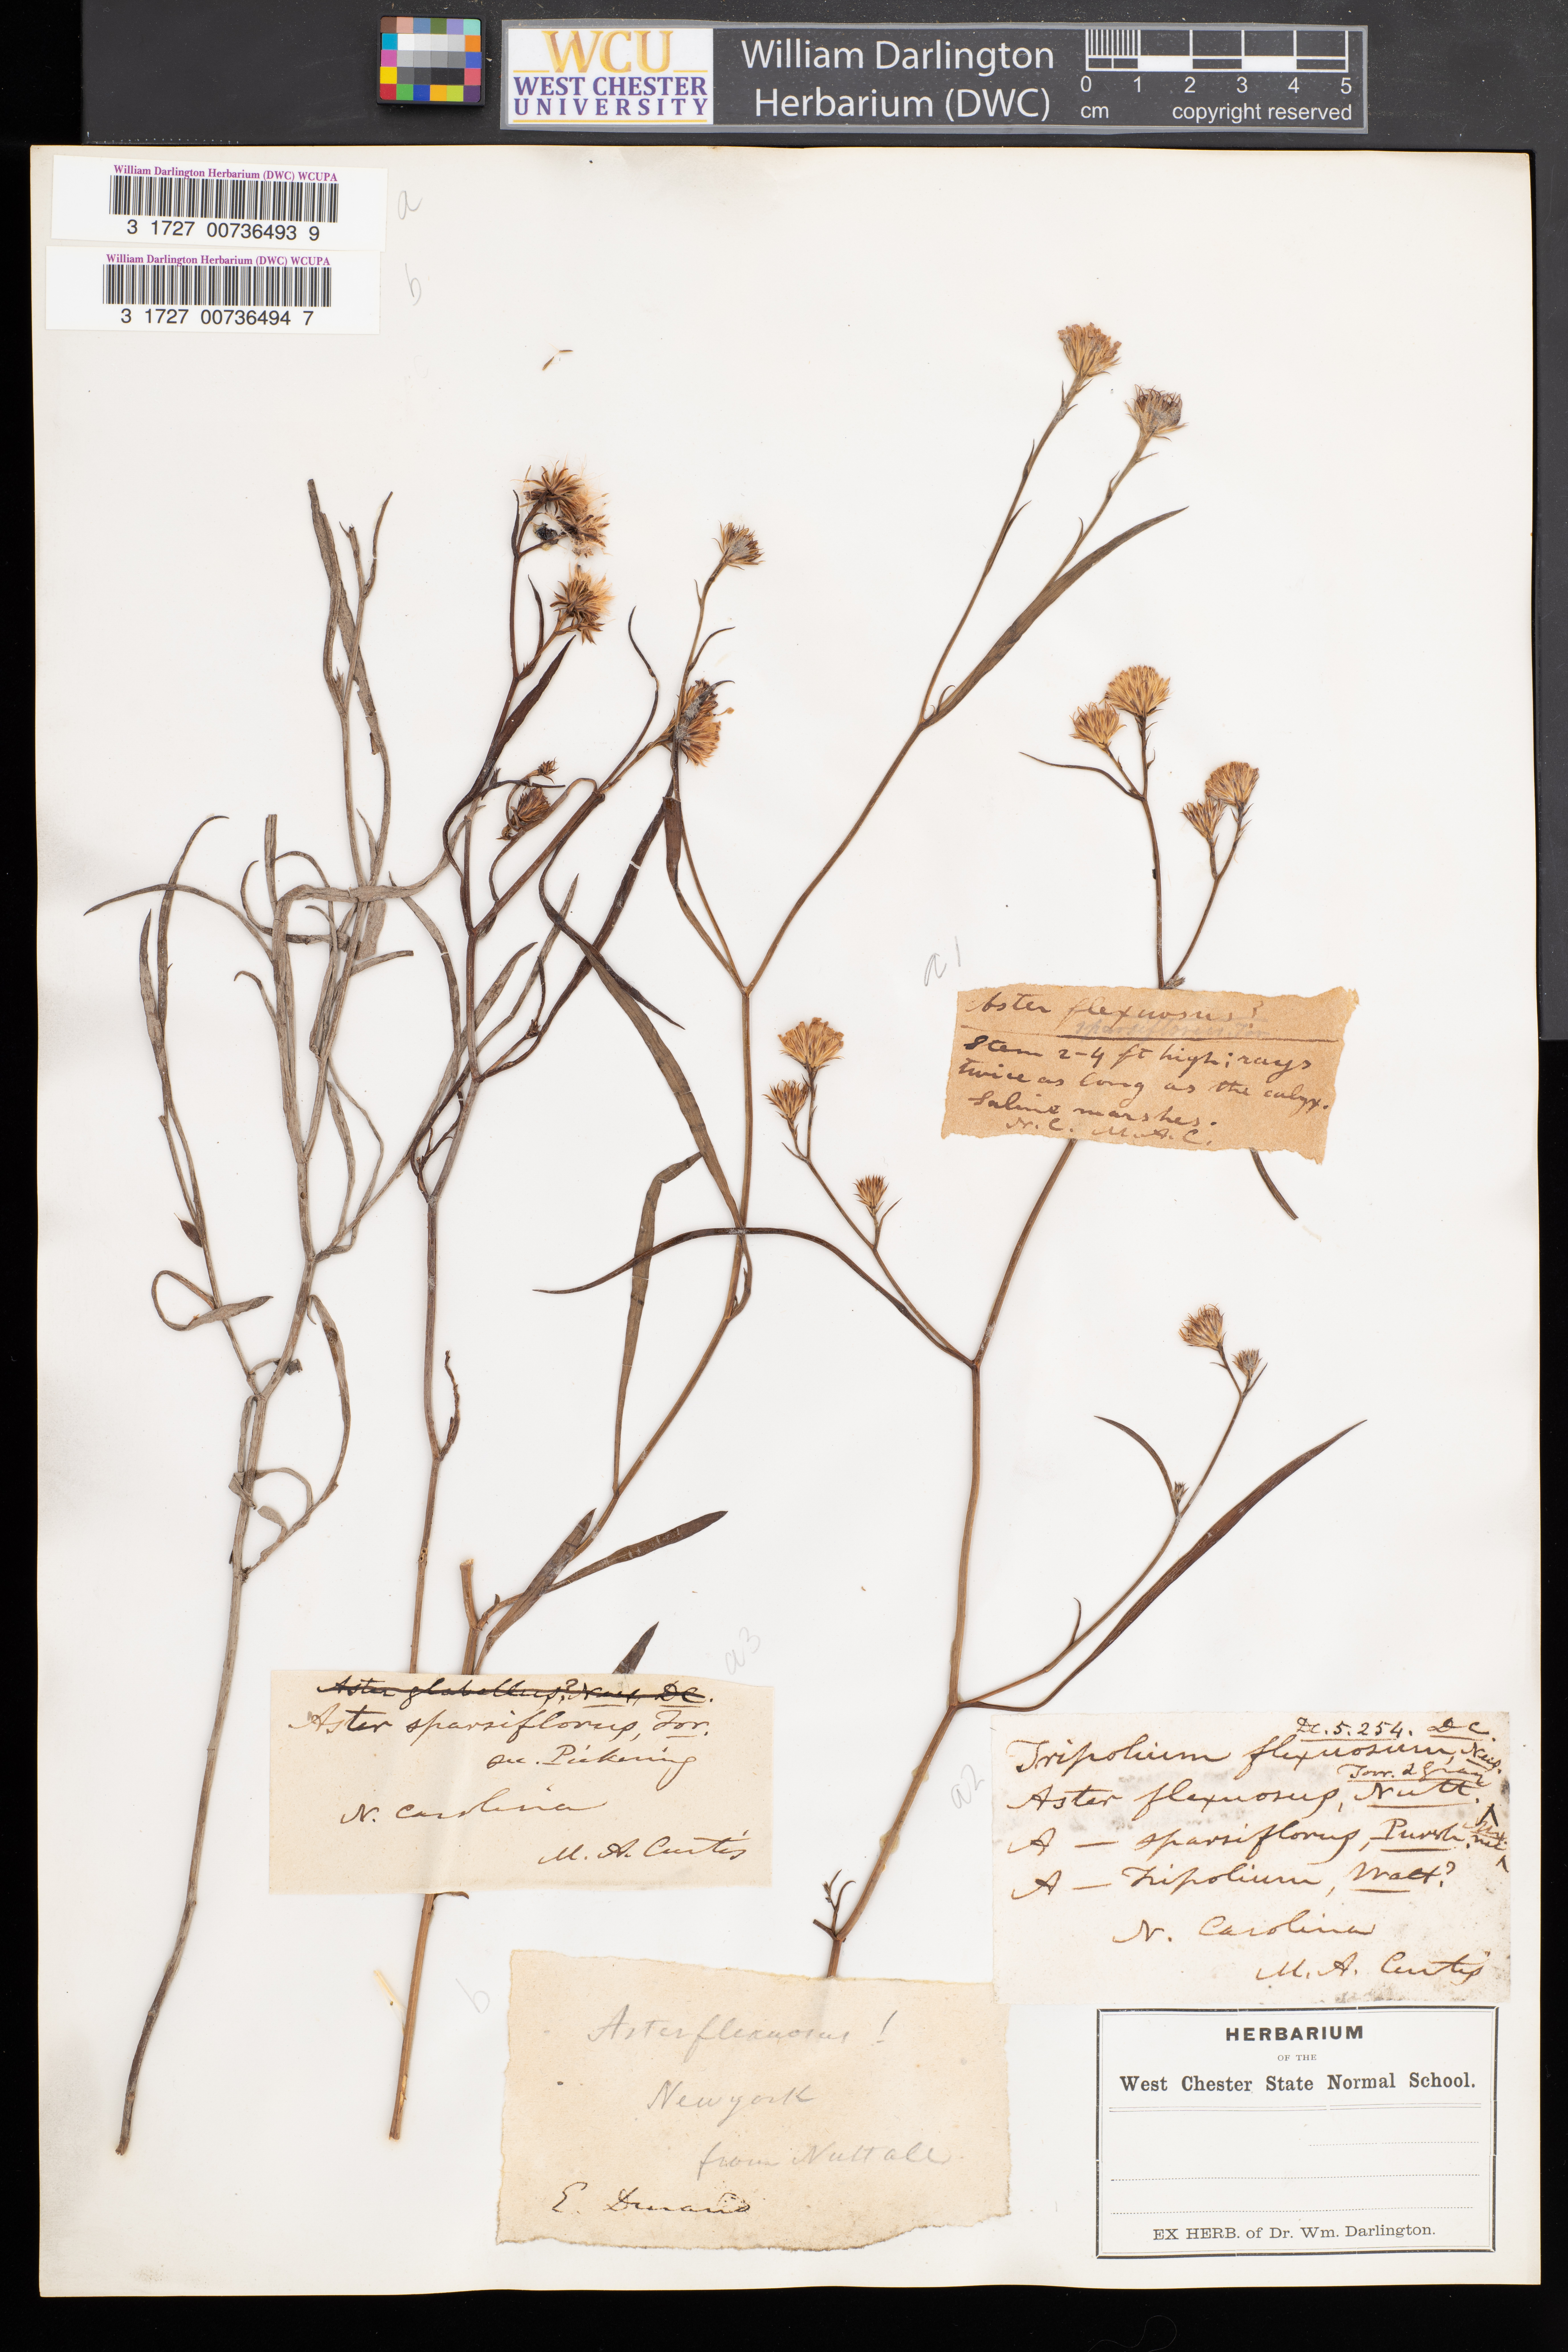 WCU
WEST CHESTER
UNIVERSITY
William Darlington
Herbarium (DWC)
0 1 2 3 4 5
cm copyright reserved
William Darlington Herbarium (DWC) WCUPA
3 1727 00736493 9
a
William Darlington Herbarium (DWC) WCUPA
3 1727 00736494 7
b
a1
Aster flexuosus?
sparsiflorus
Stem 2-4 ft high; rays
twice as long as the calyx.
Saline marshes.
N.C. M.A.C.
a3
Aster glabellus? Nees, DC.
Aster sparsiflorus, Tor.
sec. Pickering
N. Carolina
M. A. Curtis
a2
DC.5.254. DC.
Tripolium flexuosum, Nees.
Torr. & Gray
Aster flexuosus, Nutt.
A — sparsiflorus, Pursh.
A — Tripolium, Walt?
N. Carolina
M. A. Curtis
b
Aster flexuosus!
Newyork
from Nuttall
E. Durand
HERBARIUM
OF THE
West Chester State Normal School.
EX HERB. of Dr. Wm. Darlington.